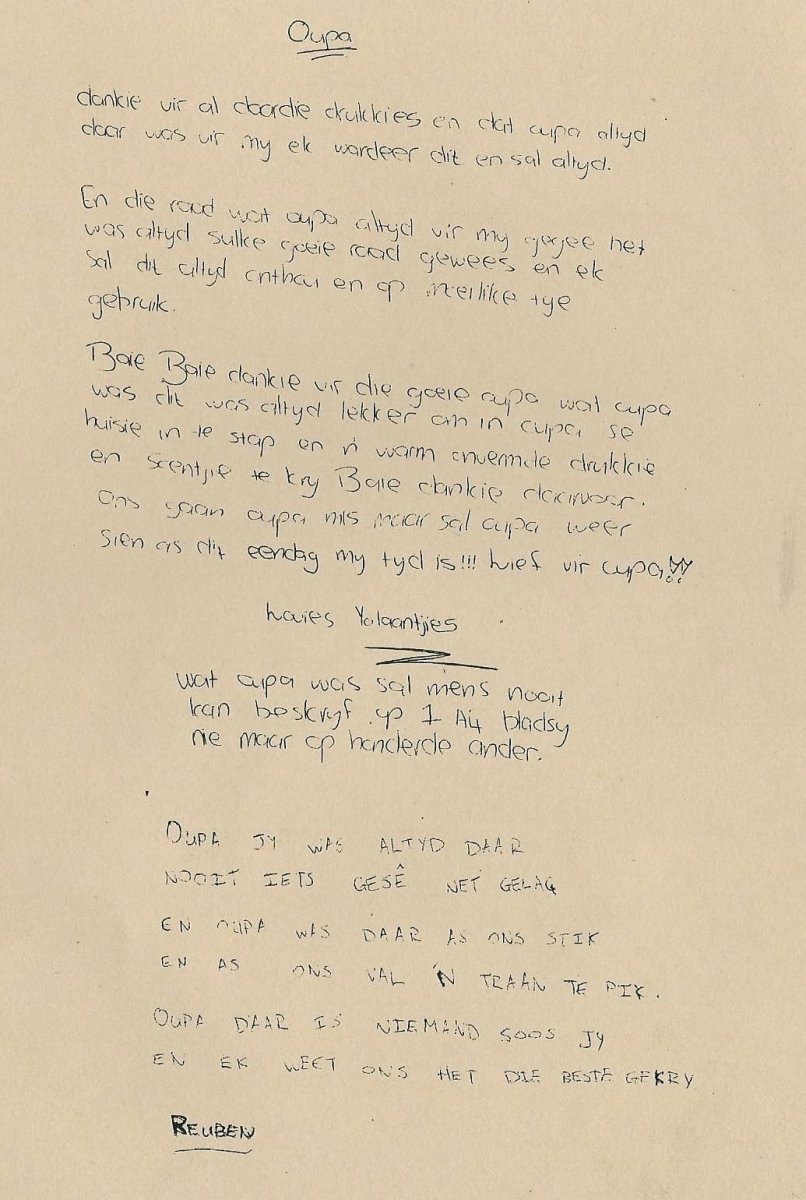 Oupa
dankie vir al daardie drukkies en dat oupa altyd
daar was vir my ek wardeer dit en sal altyd.
En die raad wat oupa altyd vir my gegee het
was altyd sulke goeie raad gewees en ek
sal dit altyd onthou en op moeilike tye
gebruik.
Baie Baie dankie vir die goeie oupa wat oupa
was dit was altyd lekker om in oupa se
huisie in te stap en 'n warm omermde drukkie
en soentjie te kry Baie dankie daarvoor.
Ons gaan oupa mis maar sal oupa weer
sien as dit eendag my tyd is!!! lief vir oupa!!
wat oupa was sal mens nooit
kan beskryf op 1 A4 bladsy
nie maar op honderde ander.
OUPA JY WAS ALTYD DAAR
NOOIT IETS GESÊ NET GELAG
EN OUPA WAS DAAR AS ONS STIK
EN AS ONS VAL 'N TRAAN TE PIK.
OUPA DAAR IS NIEMAND SOOS JY
EN EK WEET ONS HET DIE BESTE GEKRY
REUBEN